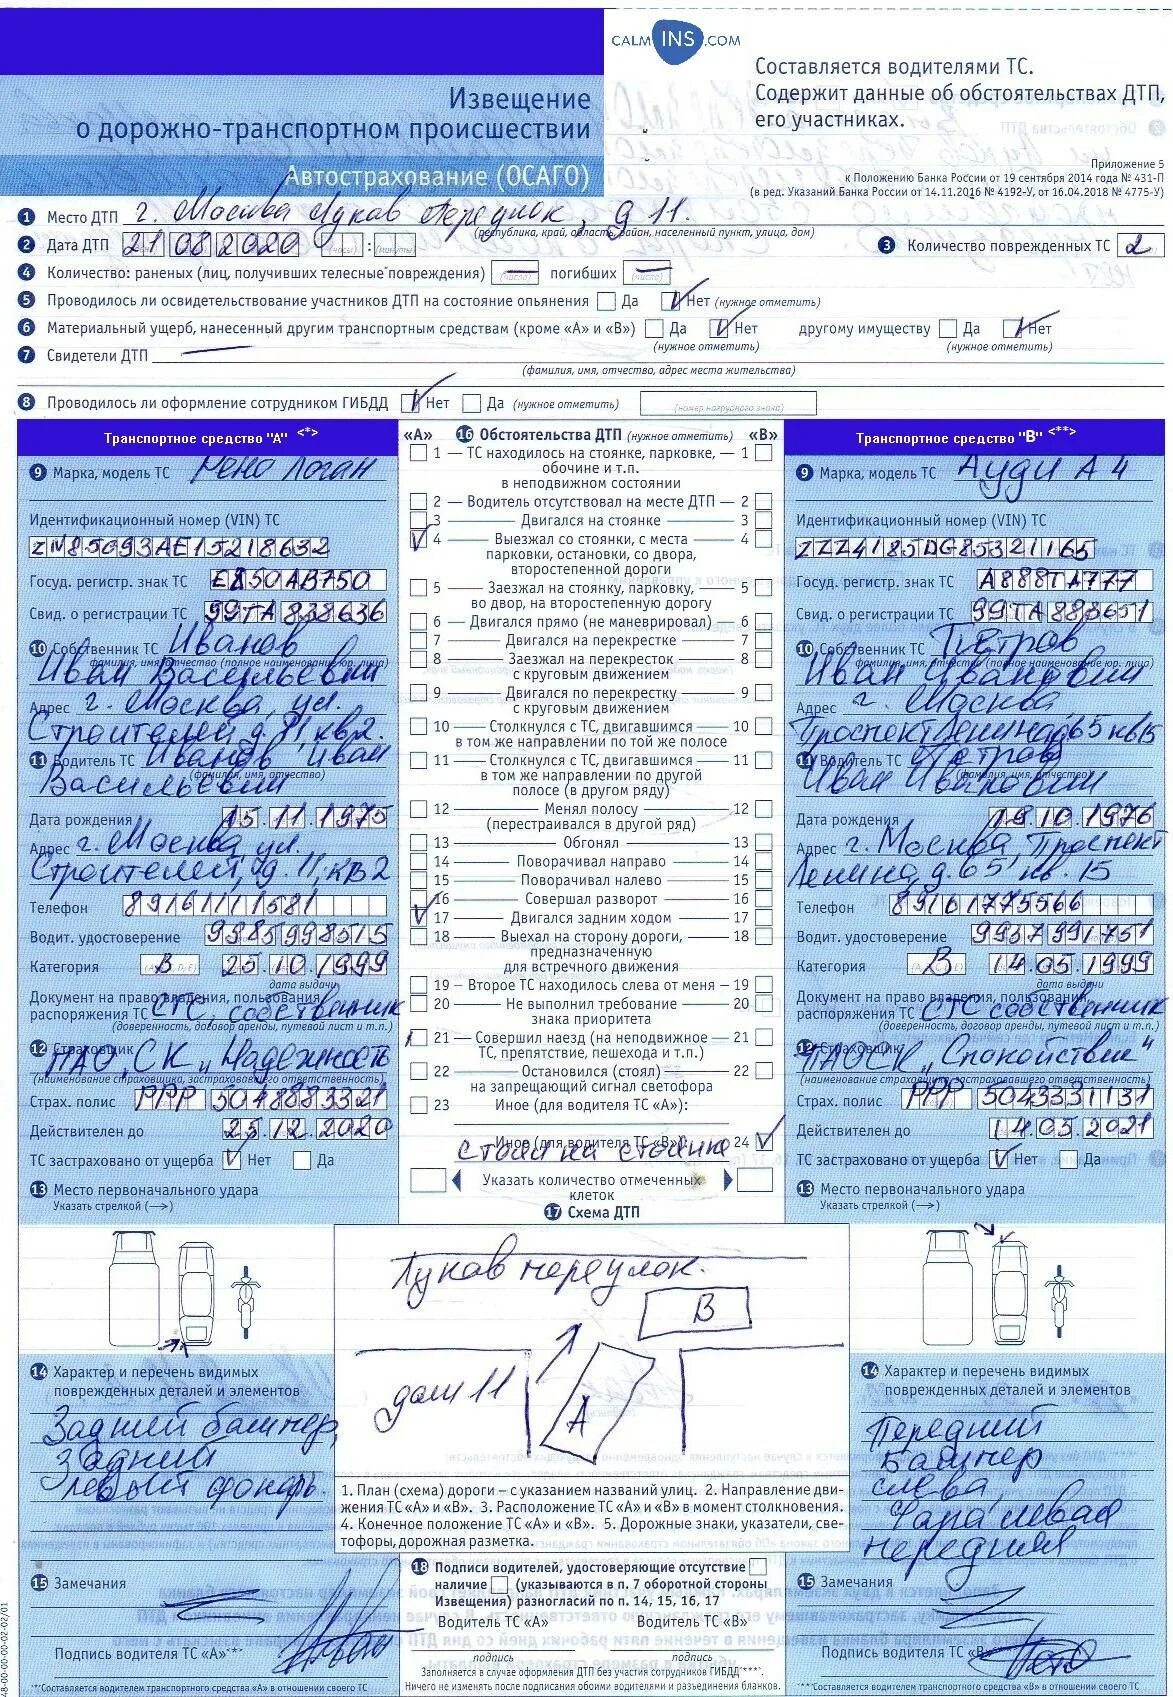 CALM INS .COM
Извещение
о дорожно-транспортном происшествии
Автострахование (ОСАГО)
Составляется водителями ТС.
Содержит данные об обстоятельствах ДТП,
его участниках.
Приложение 5
к Положению Банка России от 19 сентября 2014 года № 431-П
(в ред. Указаний Банка России от 14.11.2016 № 4192-У, от 16.04.2018 № 4775-У)
1 Место ДТП г. Москва Луков переулок, д 11.
(республика, край, область, район, населенный пункт, улица, дом)
2 Дата ДТП 21 08 2020 (часы) : (минуты) 3 Количество поврежденных ТС 2
4 Количество: раненых (лиц, получивших телесные повреждения) — (число) погибших — (число)
5 Проводилось ли освидетельствование участников ДТП на состояние опьянения Да Нет (нужное отметить)
6 Материальный ущерб, нанесенный другим транспортным средствам (кроме «А» и «В») Да Нет другому имуществу Да Нет
(нужное отметить) (нужное отметить)
7 Свидетели ДТП —
(фамилия, имя, отчество, адрес места жительства)
8 Проводилось ли оформление сотрудником ГИБДД Нет Да (нужное отметить) (номер нагрудного знака)
Транспортное средство "А" <*>
9 Марка, модель ТС Рено Логан
Идентификационный номер (VIN) ТС
ZN85093AE15218632
Госуд. регистр. знак ТС Е850АВ750
Свид. о регистрации ТС 99ТА 838636
10 Собственник ТС Иванов
(фамилия, имя, отчество (полное наименование юр. лица)
Иван Васильевич
Адрес г. Москва, ул.
Строителей д. 11, кв2.
11 Водитель ТС Иванов Иван
(фамилия, имя, отчество)
Васильевич
Дата рождения 15.11.1975
Адрес г. Москва ул.
Строителей, д. 11, кв2
Телефон 89161111581
Водит. удостоверение 9985998515
Категория В 25.10.1999
дата выдачи
Документ на право владения, пользования,
распоряжения ТС СТС, собственник
(доверенность, договор аренды, путевой лист и т.п.)
12 Страховщик
ПАО „СК „Надежность
(наименование страховщика, застраховавшего ответственность)
Страх. полис РРР 5048883321
Действителен до 25.12.2020
ТС застраховано от ущерба Нет Да
13 Место первоначального удара
Указать стрелкой (→)
14 Характер и перечень видимых
поврежденных деталей и элементов
Задний бампер,
задний
левый фонарь.
15 Замечания
Подпись водителя ТС «А»**
*Составляется водителем транспортного средства «А» в отношении своего ТС
«А» 16 Обстоятельства ДТП (нужное отметить) «В»
1 — ТС находилось на стоянке, парковке, — 1
обочине и т.п.
в неподвижном состоянии
2 — Водитель отсутствовал на месте ДТП — 2
3 — Двигался на стоянке — 3
4 — Выезжал со стоянки, с места — 4
парковки, остановки, со двора,
второстепенной дороги
5 — Заезжал на стоянку, парковку, — 5
во двор, на второстепенную дорогу
6 — Двигался прямо (не маневрировал) — 6
7 — Двигался на перекрестке — 7
8 — Заезжал на перекресток — 8
с круговым движением
9 — Двигался по перекрестку — 9
с круговым движением
10 — Столкнулся с ТС, двигавшимся — 10
в том же направлении по той же полосе
11 — Столкнулся с ТС, двигавшимся — 11
в том же направлении по другой
полосе (в другом ряду)
12 — Менял полосу — 12
(перестраивался в другой ряд)
13 — Обгонял — 13
14 — Поворачивал направо — 14
15 — Поворачивал налево — 15
16 — Совершал разворот — 16
17 — Двигался задним ходом — 17
18 — Выехал на сторону дороги, — 18
предназначенную
для встречного движения
19 – Второе ТС находилось слева от меня – 19
20 — Не выполнил требование — 20
знака приоритета
21 — Совершил наезд (на неподвижное — 21
ТС, препятствие, пешехода и т.п.)
22 — Остановился (стоял) — 22
на запрещающий сигнал светофора
23 Иное (для водителя ТС «А»):
Иное (для водителя ТС «В»): 24
стоял на стоянке
Указать количество отмеченных
клеток
17 Схема ДТП
Луков переулок.
В
дом 11
А
1. План (схема) дороги – с указанием названий улиц. 2. Направление дви-
жения ТС «А» и «В». 3. Расположение ТС «А» и «В» в момент столкновения.
4. Конечное положение ТС «А» и «В». 5. Дорожные знаки, указатели, све-
тофоры, дорожная разметка.
18 Подписи водителей, удостоверяющие отсутствие
наличие (указываются в п. 7 оборотной стороны
Извещения) разногласий по п. 14, 15, 16, 17
Водитель ТС «А» Водитель ТС «В»
подпись подпись
Заполняется в случае оформления ДТП без участия сотрудников ГИБДД****.
Ничего не изменять после подписания обоими водителями и разъединения бланков.
Транспортное средство "В" <**>
9 Марка, модель ТС Ауди А4
Идентификационный номер (VIN) ТС
ZZZ4185DG85321165
Госуд. регистр. знак ТС А888ТА777
Свид. о регистрации ТС 99ТА 888651
10 Собственник ТС Петров
(фамилия, имя, отчество (полное наименование юр. лица)
Иван Иванович
Адрес г. Москва
Проспект Ленина, д65 кв15
11 Водитель ТС Петров
(фамилия, имя, отчество)
Иван Иванович
Дата рождения 18.10.1976
Адрес г. Москва, Проспект
Ленина, д. 65 кв. 15
Телефон 89161775566
Водит. удостоверение 9937991751
Категория В 14.05.1999
дата выдачи
Документ на право владения, пользования,
распоряжения ТС СТС собственник
(доверенность, договор аренды, путевой лист и т.п.)
12 Страховщик
"ПАО СК „Спокойствие"
(наименование страховщика, застраховавшего ответственность)
Страх. полис РРР 5043331131
Действителен до 14.05.2021
ТС застраховано от ущерба Нет Да
13 Место первоначального удара
Указать стрелкой (→)
14 Характер и перечень видимых
поврежденных деталей и элементов
Передний
бампер
слева,
Фара левая
передняя
15 Замечания
Подпись водителя ТС «В»
**Составляется водителем транспортного средства «В» в отношении своего ТС
48-00-00-00-02-02/01